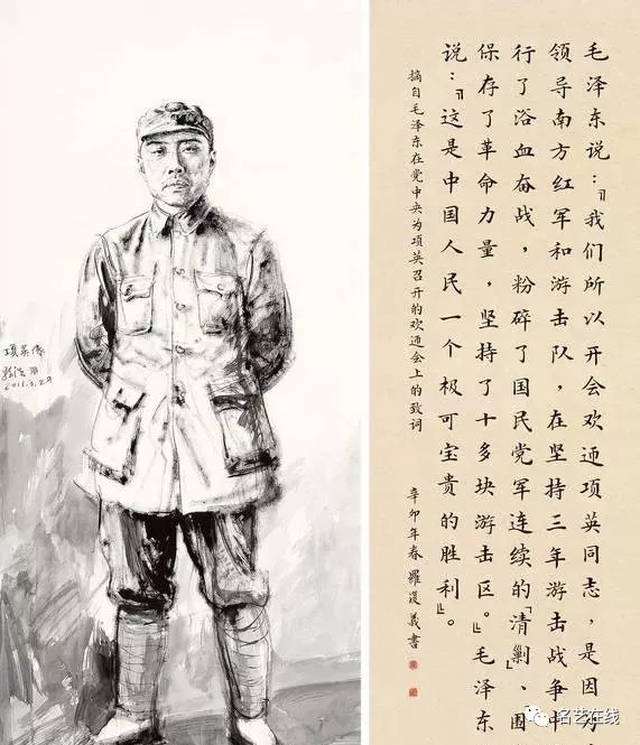 毛泽东说：『我们所以开会欢迎项英同志，是因
领导南方红军和游击队，在坚持三年游击战争中
行了浴血奋战，粉碎了国民党军连续的「清剿」、围
保存了革命力量，坚持了十多块游击区。』毛泽东
说：『这是中国人民一个极可宝贵的胜利』。
摘自毛泽东在党中央为项英召开的欢迎会上的致词
辛卯年春羅義書
项英像
2011.3.29
名艺在线